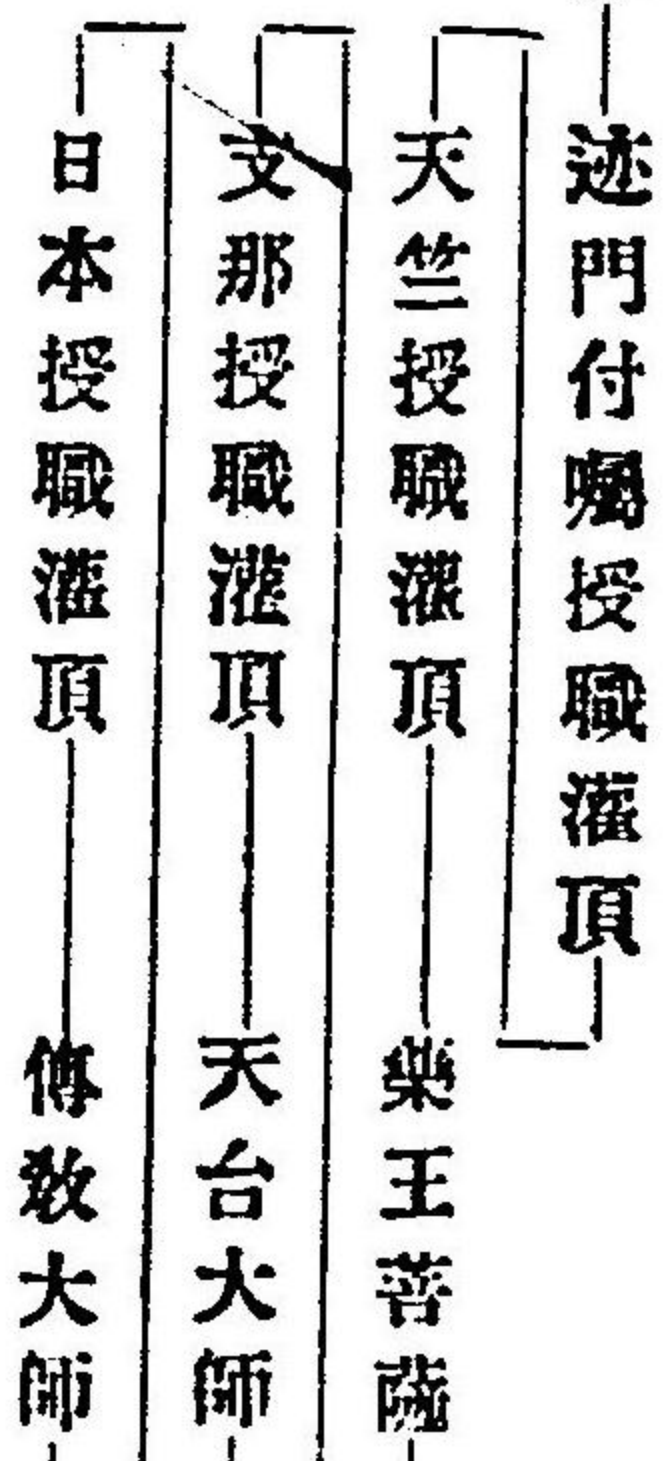 迹門付囑授職灌頂
天竺授職灌頂
藥王菩薩
支那授職灌頂
天台大師
日本授職灌頂
傳教大師